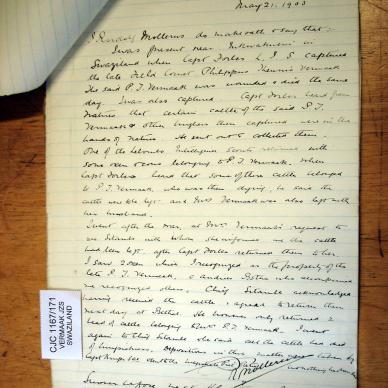 May 21. 1903
I, Rudolf Mollerus do make oath & say that:
I was present near in
Swaziland when Capt Forbes L. I. S captured
the late Field Cornet Philippus Vermaak
The said P J Vermaak was wounded & died the same
day. I was also captured. Capt Forbes heard from
natives that certain cattle of the said P. J.
Vermaak & other burghers then captured were in the
hands of natives. He sent out & collected them.
One of the Intelligence Scouts returned with
some oxen & cows belonging to P. J. Vermaak. When
Capt Forbes heard that some of these cattle belonged
to P. J. Vermaak, who was then dying, he said the
cattle must be left, and Mrs Vermaak was also left with
her husband.
I went after the war, at Mrs Vermaak's request to
see with whom she informed me the cattle
had been left, after Capt Forbes returned them to her.
I saw 2 oxen which I recognized as the property of the
late P. J. Vermaak, & Andries Botha who accompanied
me recognized them. Chief acknowledged
having received the cattle & agreed to return them
next day, at Bethel. He however only returned
head of cattle belonging to Mrs P. J. Vermaak. I went
again to this she said all the cattle had died
of lungsickness. Depositions in this matter were taken by
Capt
Sworn before me
CJC 1167/171
VERMAAK JZS
SWAZILAND